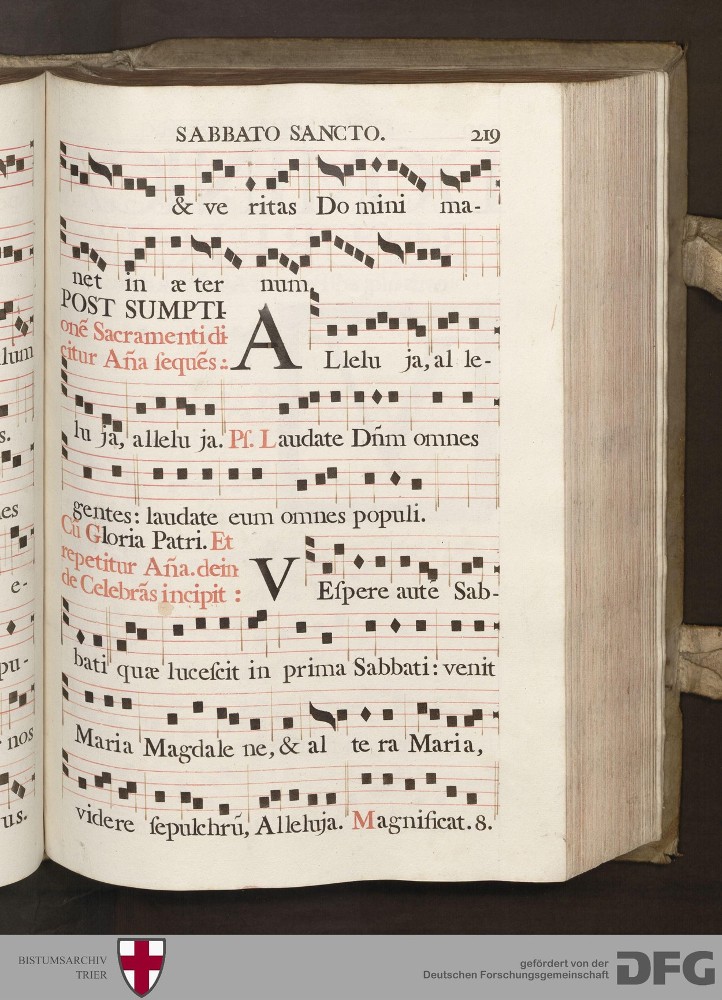 SABBATO SANCTO. 219
& ve ritas Do mini ma-
net in æ ter num,
POST SUMPTI-
onē Sacramenti di
citur Aña ſequēs :
A Llelu ja, al le-
lu ja, allelu ja. Pſ. Laudate Dñm omnes
gentes: laudate eum omnes populi.
Cū Gloria Patri. Et
repetitur Aña. dein
de Celebrās incipit :
V Eſpere autē Sab-
bati quæ luceſcit in prima Sabbati: venit
Maria Magdale ne, & al te ra Maria,
videre ſepulchrū, Alleluja. Magnificat. 8.
lum
s.
es
e-
pu-
nos
us.
BISTUMSARCHIV
TRIER
gefördert von der
Deutschen Forschungsgemeinschaft
DFG